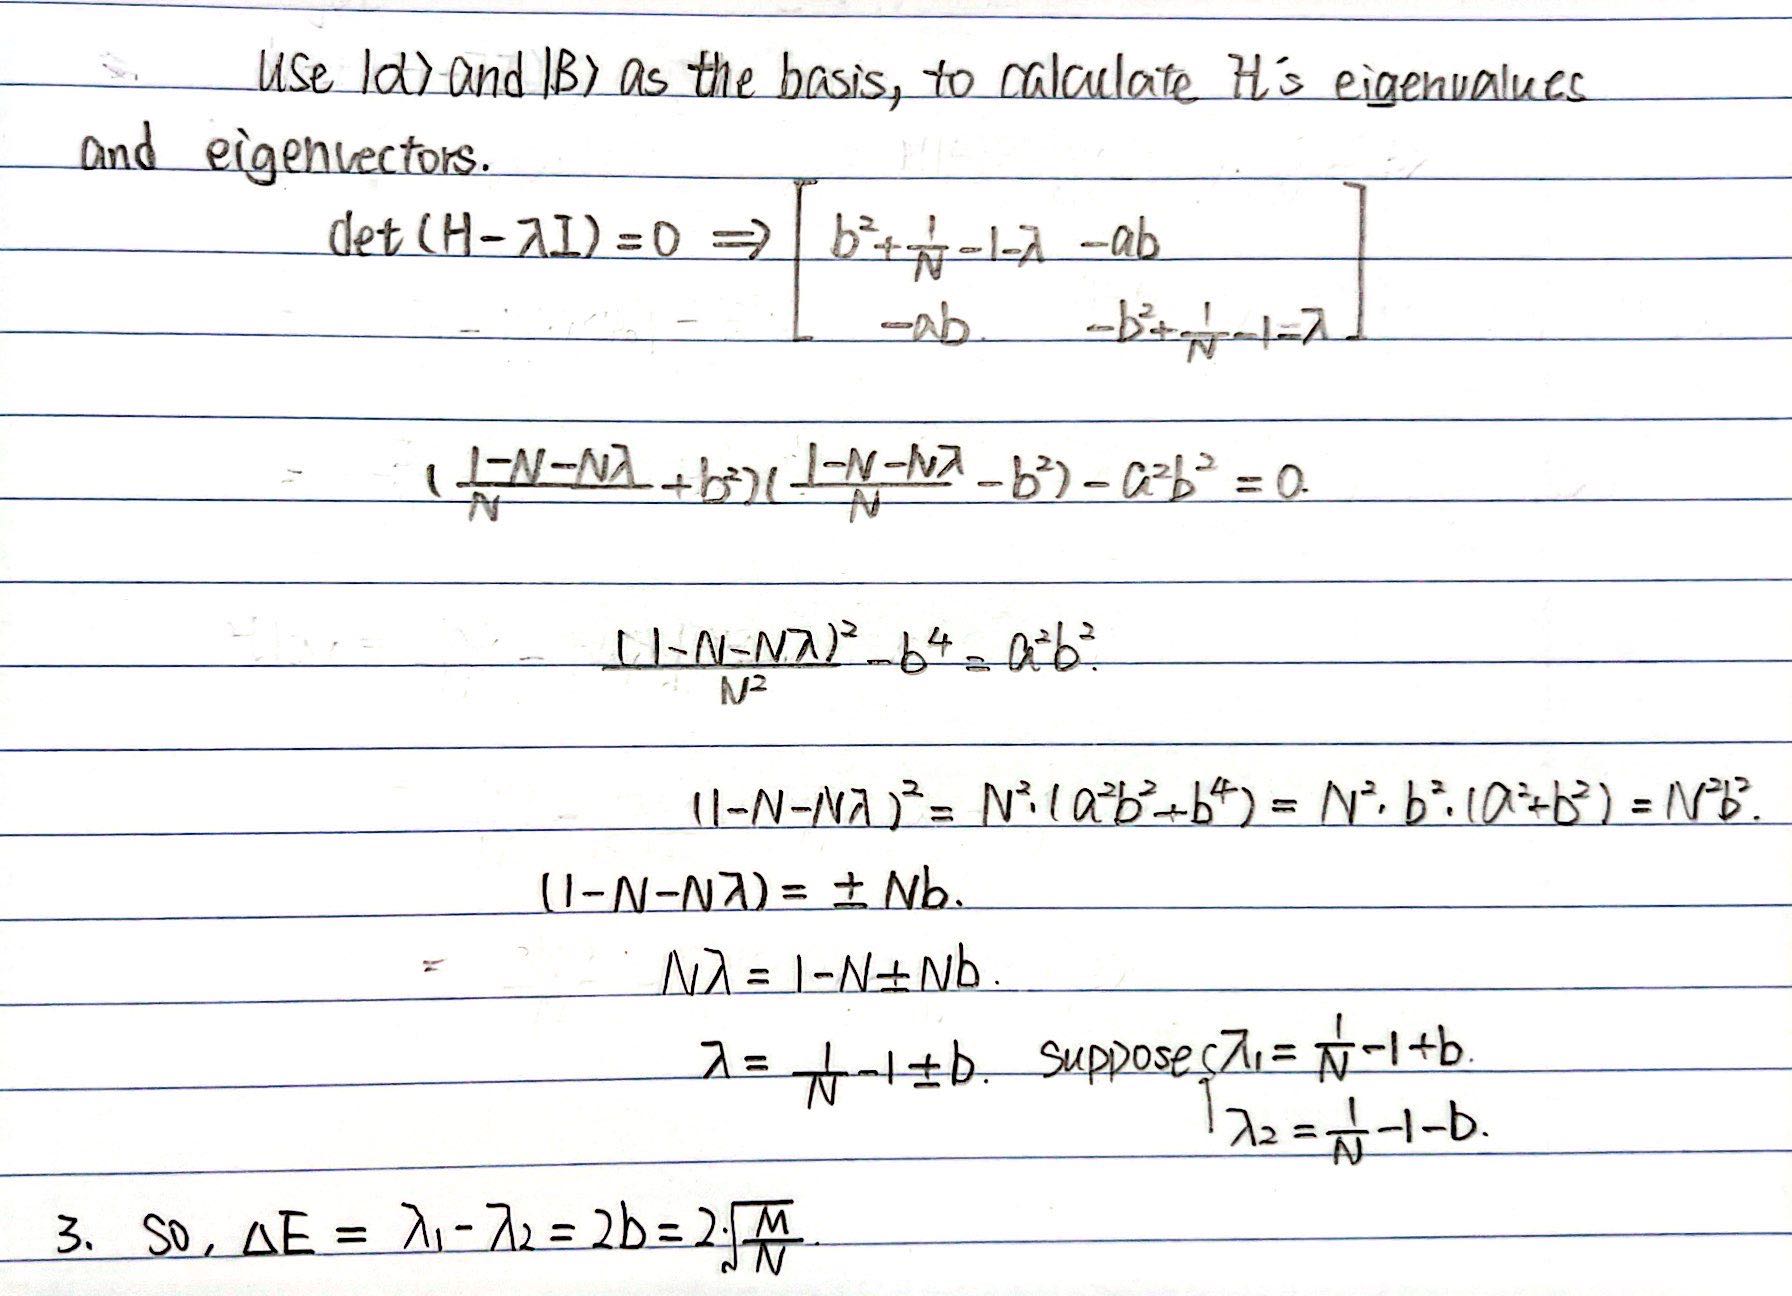 Use |α⟩ and |B⟩ as the basis, to calculate H's eigenvalues
and eigenvectors.
det(H-λI)=0 ⇒ [ b²+1/N-1-λ  -ab
-ab.  -b²+1/N-1-λ ]
((1-N-Nλ)/N +b²)((1-N-Nλ)/N -b²)-a²b²=0.
(1-N-Nλ)²/N² -b⁴=a²b².
(1-N-Nλ)²=N²·(a²b²+b⁴)=N²·b²·(a²+b²)=N²b².
(1-N-Nλ)=±Nb.
Nλ=1-N±Nb.
λ=1/N-1±b. suppose { λ₁=1/N-1+b.
λ₂=1/N-1-b.
3. So, ΔE=λ₁-λ₂=2b=2·√(M/N).